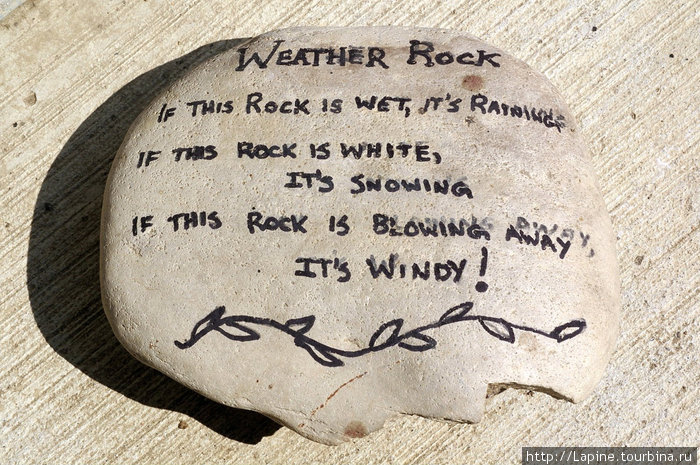 WEATHER ROCK
IF THIS ROCK IS WET, IT'S RAINING.
IF THIS ROCK IS WHITE,
IT'S SNOWING
IF THIS ROCK IS BLOWING AWAY,
IT'S WINDY!
http://Lapine.tourbina.ru